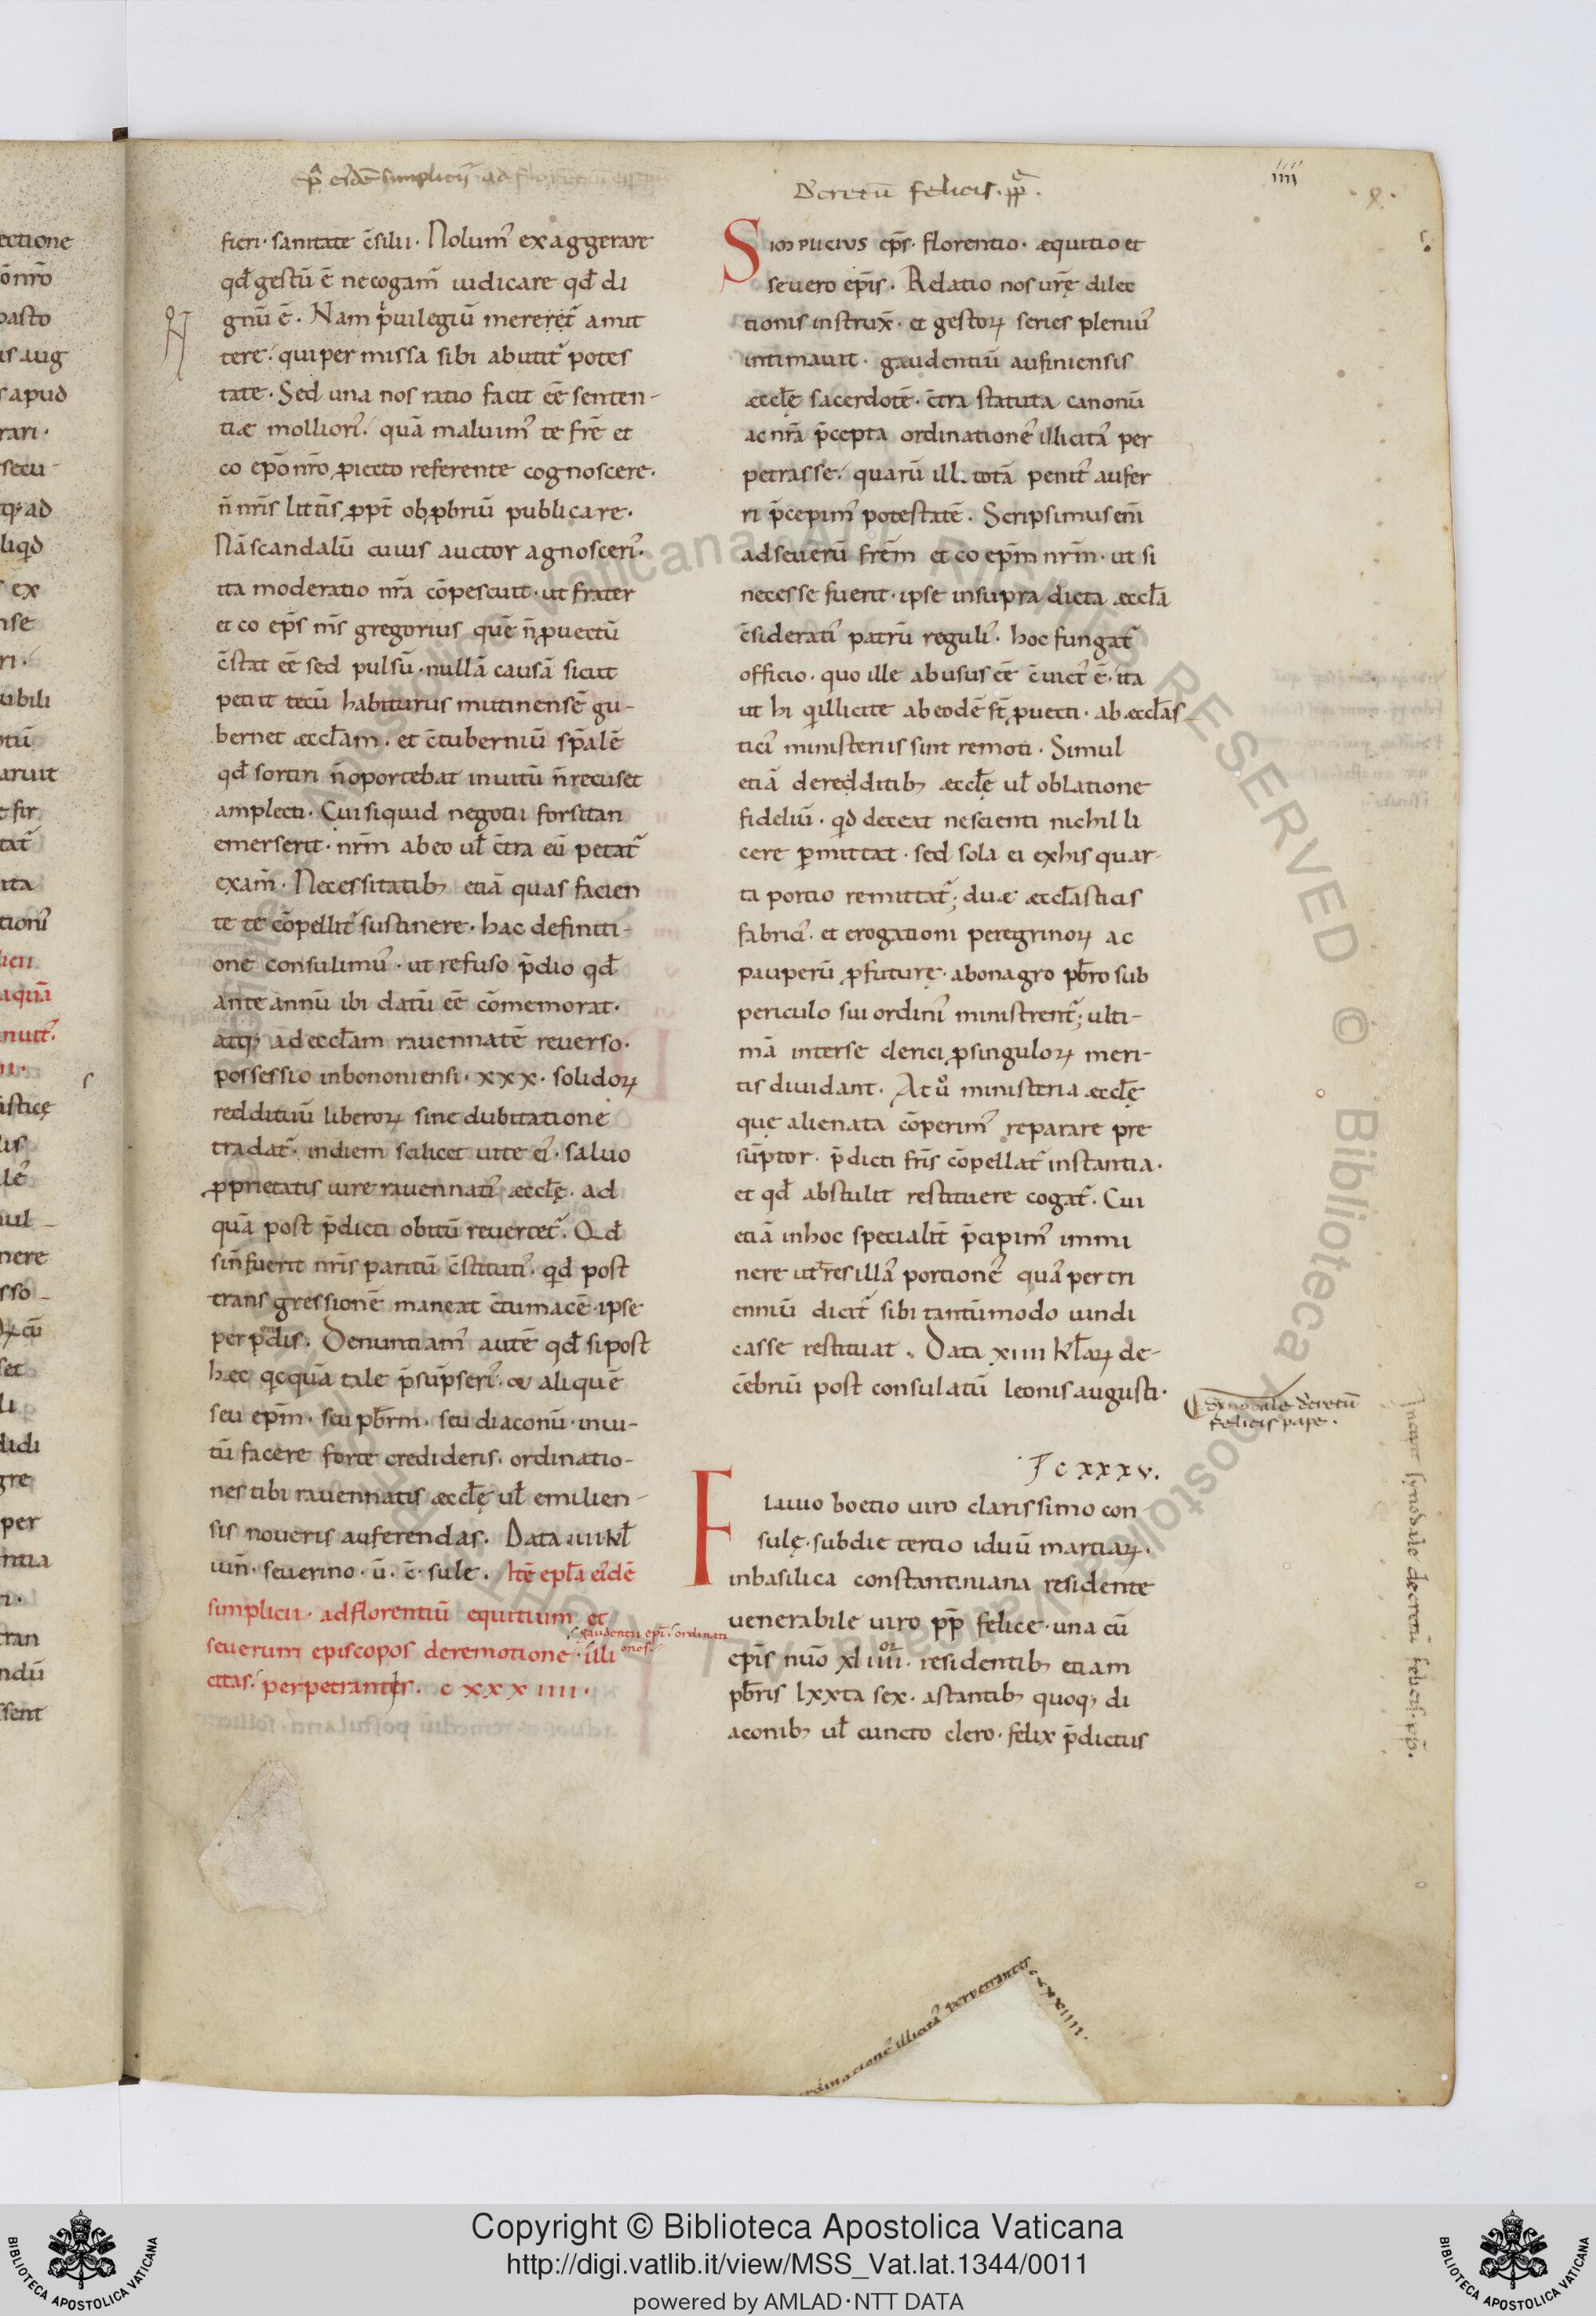 ep̄ eiꝰdē simplicii ad florentiū
Decretū felicis. pp̄.
iiii
fieri · sanitate c̄silii · Nolumꝰ exaggerare
qd̄ gestū ē ne cogam̄ iudicare qd̄ di
gnū ē · Nam p̄uilegiū mereret̄ amit
tere · qui permissa sibi abutit̄ potes
tate · Sed una nos ratio facit eē senten-
tiæ mollioris · quā maluimꝰ te frē et
co epō nrō ꝓiecto referente cognoscere ·
n̄ nr̄is litt̄is ꝓpt̄ obꝓbriū publicare ·
Nā scandalū cuius auctor agnosceris ·
ita moderatio nr̄a cōpescuit · ut frater
et co ep̄s nr̄s gregorius quē n̄ ꝓuectū
c̄stat eē sed pulsū · nullā causā sicut
petiit tecū habiturus mutinensē gu-
bernet æccl̄am · et c̄tuberniū sp̄alē
qd̄ sortiri n̄ oportebat inuitū n̄ recuset
amplecti · Cui siquid negotii forsitan
emerserit · nr̄m ab eo ul̄ c̄tra eū petat̄
exam̄ · Necessitatibꝫ etiā quas facien
te te cōpellit̄ sustinere · hac definiti-
one consulimꝰ · ut refuso p̄dio qd̄
ante annū ibi datū eē cōmemorat ·
atqꝫ ad eccl̄am rauennatē reuerso ·
possessio in bononiensi · xxx · solidoꝝ
reddituū liberoꝝ sine dubitatione
tradat̄ · in diem scilicet uite eiꝰ · saluo
ꝓprietatis iure rauennatis æccl̄ę · ad
quā post p̄dicti obitū reuertet̄ · Qd̄
si n̄ fuerit nr̄is paritū c̄stitutis · qd̄ post
transgressionē maneat c̄tumacē · ipse
perpendis · Denuntiamꝰ autē qd̄ si post
hæc qicquā tale p̄sūpseris · & aliquē
seu ep̄m · seu pb̄rm · seu diaconū · inui-
tū facere forte credideris · ordinatio-
nes tibi rauennatis æccl̄ę ul̄ emilien-
sis noueris auferendas · Data iiii · kl̄
iun̄ · seuerino · ū · c̄ · sule · Itē epl̄a eiꝰdē
simplicii · ad florentiū equitium et
seuerum episcopos de remotione · illi
gaudentii ep̄i · ordinati
ones ·
citas · perpetrantes · cxxxiiii ·
SIMPLICIVS ep̄s · florentio · æquitio et
seuero ep̄is · Relatio nos ur̄ę dilec
tionis instrux̄ · et gestoꝝ series pleniꝰ
intimauit · gaudentiū aufiniensis
æccl̄ę sacerdotē · c̄tra statuta canonū
ac nr̄a p̄cepta ordinationes illicitas per
petrasse · quarū ill. totā penit̄ aufer
ri p̄cepimꝰ potestatē · Scripsimus eni
ad seuerū fr̄em et co ep̄m nr̄m · ut si
necesse fuerit · ipse in supra dicta æccl̄a
c̄sideratis patrū regulis · hoc fungat̄
officio · quo ille abusus eē c̄uictꝰ ē · ita
ut hi qi illicite ab eodē st̄ ꝓuecti · ab æccl̄as-
ticis ministeriis sint remoti · Simul
etiā de redditibꝫ æccl̄ę ul̄ oblatione
fideliū · qd deceat nescienti nichil li
cere ꝑmittat · sed sola ei ex his quar-
ta portio remittat̄; duæ æccl̄asticis
fabricis · et erogationi peregrinoꝝ ac
pauperū ꝓfuturę · ab onagro pb̄ro sub
periculo sui ordinis ministrent̄; ulti-
mā inter se clerici ꝓ singuloꝝ meri-
tis diuidant · At uͦ ministeria æccl̄ę
que alienata cōperimꝰ reparare pre
sūptor · p̄dicti fr̄is cōpellat̄ instantia ·
et qd̄ abstulit restituere cogat̄ · Cui
etiā in hoc specialit̄ p̄cipimꝰ immi
nere ut tres illas portiones quas per tri
enniū dicit̄ sibi tantūmodo uindi
casse restituat · Data xiiii kl̄aꝝ de-
cēbriū post consulatū leonis augusti ·
Synodale decretū
felicis pape ·
cxxxv.
Flauio boetio uiro clarissimo con-
sulę · sub die tertio iduū martiaꝝ ·
in basilica constantiniana residente
uenerabile uiro pp̄ felice · una cū
ep̄is nūo xliiiior · residentibꝫ etiam
pb̄ris lxxta sex · astantibꝫ quoqꝫ di
aconibꝫ ul̄ cuncto clero · felix p̄dictus
Incipit synodale decretū felicis · pp̄.
ordinationes illicitas perpetrantes cxxxiiii.
Copyright © Biblioteca Apostolica Vaticana
http://digi.vatlib.it/view/MSS_Vat.lat.1344/0011
powered by AMLAD·NTT DATA
BIBLIOTECA APOSTOLICA VATICANA
BIBLIOTECA APOSTOLICA VATICANA